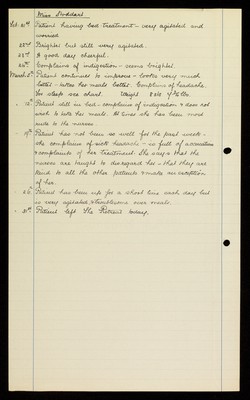 Miss Stoddart.
Feb. 21st Patient having bed treatment - very agitated and
worried
22nd Brighter but still very agitated.
23rd A good day cheerful.
24th Complains of indigestion - seems brighter.
March 5th Patient continues to improve - looks very much
better - takes her meals better. Complains of headache.
Her sleep was short. Weight 8 st 4 lbs.
12. Patient still in bed - complains of indigestion & does not
wish to take her meals. At times she has been most
rude to the nurses
19th Patient has not been so well for the past week -
she complains of sick headache - is full of accusations
& complaints of her treatment. She says that the
nurses are taught to disregard her - that they are
kind to all the other patients & make an exception
of her.
Patient has been up for a short time each day but
is very agitated & troublesome over meals.
31st Patient left The Retreat today.